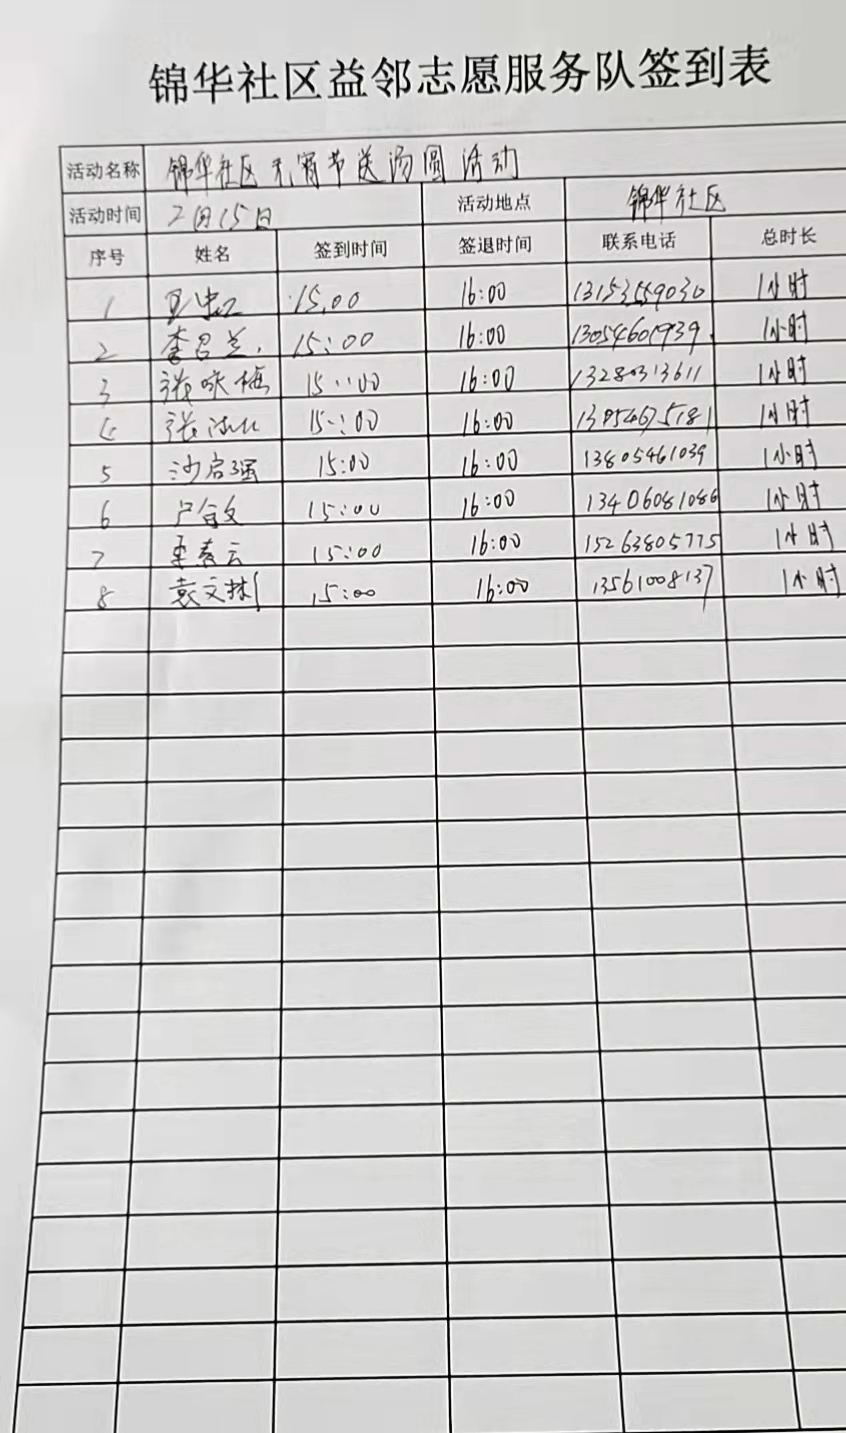 锦华社区益邻志愿服务队签到表
活动名称 锦华社区元宵节送汤圆活动
活动时间 2月15日 活动地点 锦华社区
序号 姓名 签到时间 签退时间 联系电话 总时长
1 15.00 16:00 13153559030 1小时
2 李召兰. 15:00 16:00 13054601939. 1小时
3 张咏梅 15:00 16:00 13280313611 1小时
4 张 15:00 16:00 13954675181 1小时
5 沙启强 15:00 16:00 13805461039 1小时
6 卢令文 15:00 16:00 13406081086 1小时
7 春云 15:00 16:00 15263805775 1小时
8 袁文彬 15:00 16:00 13561008137 1小时